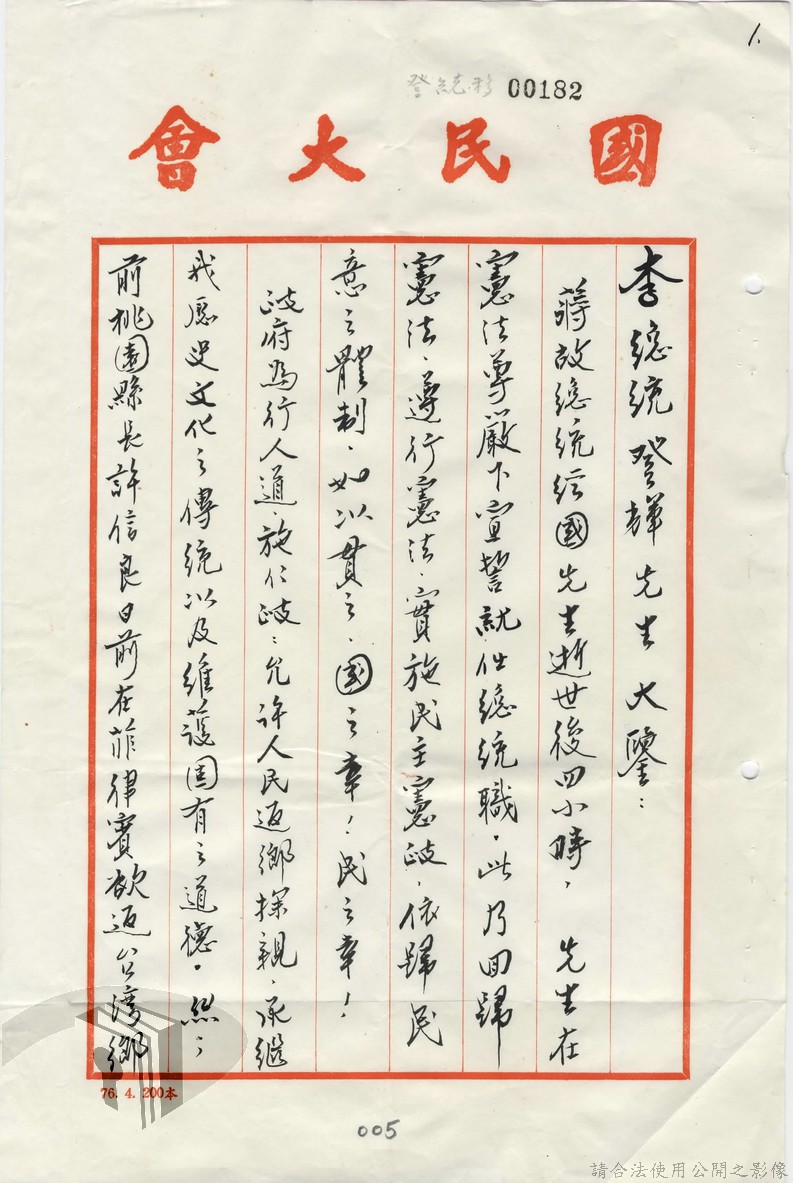 1.
登統彩 00182
國民大會
李總統登輝先生大鑒：
蔣故總統經國先生逝世後四小時，先生在
憲法尊嚴下宣誓就任總統職，此乃回歸
憲法、遵行憲法、實施民主憲政，依歸民
意之體制，如以貫之，國之幸！民之幸！
政府為行人道，施仁政：允許人民返鄉探親，承繼
我歷史文化之傳統以及維護固有之道德。然：
前桃園縣長許信良日前在菲律賓欲返台灣鄉
76. 4. 200本
005
請合法使用公開之影像